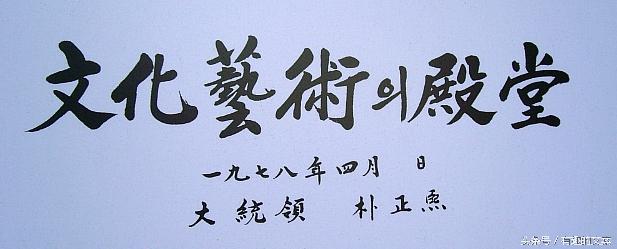 文化藝術의殿堂
一九七八年四月 日
大統領 朴正熙
头条号/有趣的文宾